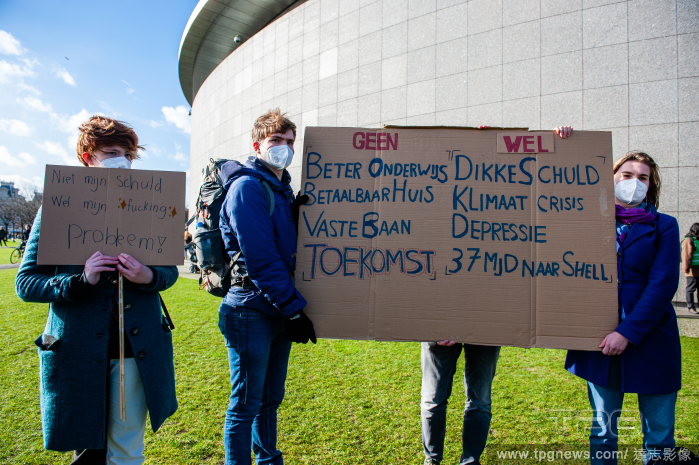 Niet mijn Schuld
Wel mijn *fucking*
Probleem!
GEEN
BETER ONDERWIJS
BETAALBAAR HUIS
VASTE BAAN
TOEKOMST
WEL
DIKKE SCHULD
KLIMAAT CRISIS
DEPRESSIE
37 MJD NAAR SHELL
TPG
www.tpgnews.com/達志影像